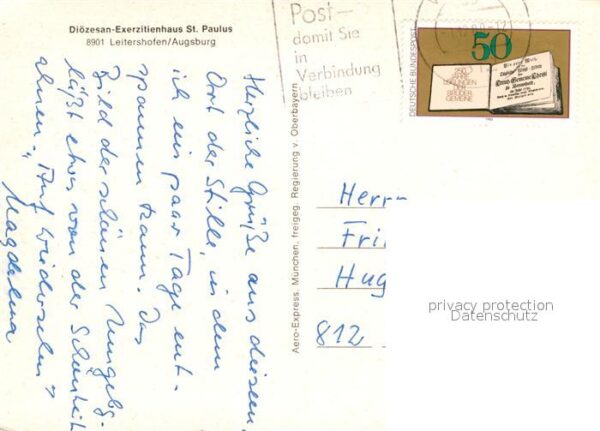 Diözesan-Exerzitienhaus St. Paulus
8901 Leitershofen/Augsburg
Herzliche Grüße aus diesem
Ort der Stille, in dem
ich ein paar Tage ent-
spannen kann. Das
Bild der schönen Umgebg.
läßt etwas von der Schönheit
ahnen. „Auf Wiedersehen"
Magdalena
Aero-Express. München, freigeg. Regierung v. Oberbayern
Post—
damit Sie
in
Verbindung
bleiben
50
DEUTSCHE BUNDESPOST
250
JAHRE
LOSUNGEN
DER
BRÜDER-
GEMEINE
Herr
Fri
Hug
812
privacy protection
Datenschutz